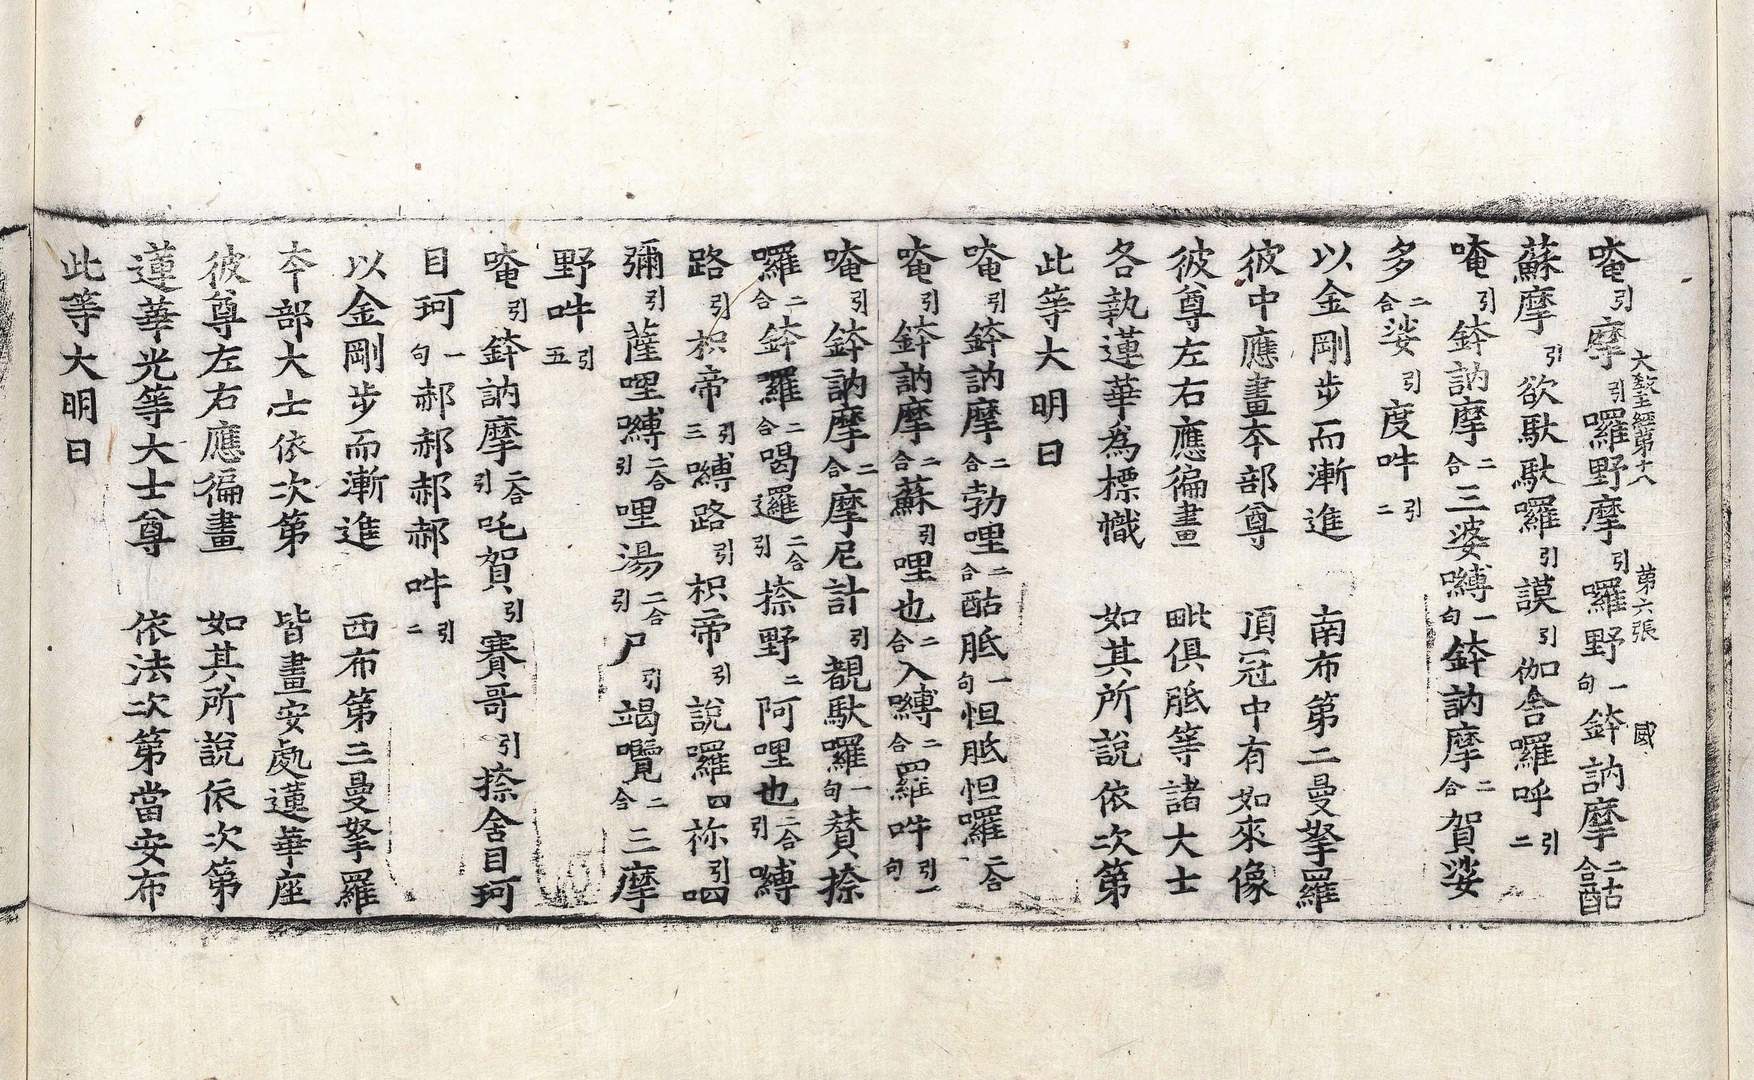 大教王經第十八 第六張 國
唵引摩引囉野摩引囉野一句鉢訥摩二合酤
蘇摩引欲馱馱囉引謨引伽舍囉呼引二
唵引鉢訥摩二合三婆嚩一句鉢訥摩二合賀娑
多二合娑引度吽引二
以金剛步而漸進 南布第二曼拏羅
彼中應畫本部尊 頂冠中有如來像
彼尊左右應徧畫 毗俱胝等諸大士
各執蓮華為標幟 如其所說依次第
此等大明曰
唵引鉢訥摩二合勃哩二合酤胝一句怛胝怛囉二合
唵引鉢訥摩二合蘇引哩也二合入嚩二合羅吽引一句
唵引鉢訥摩二合摩尼計引覩馱囉一句賛捺
囉二合鉢羅二合喝邏二合引捺野二阿哩也二合引嚩
路引枳帝引三嚩路引枳帝引說囉四祢引呬
彌引薩哩嚩二合引哩湯二合引尸引竭嚂二合三摩
野吽引五
唵引鉢訥摩二合引吒賀引賽哥引捺舍目珂
目珂一句郝郝郝郝吽引二
以金剛步而漸進 西布第三曼拏羅
本部大士依次第 皆畫安處蓮華座
彼尊左右應徧畫 如其所說依次第
蓮華光等大士尊 依法次第當安布
此等大明曰